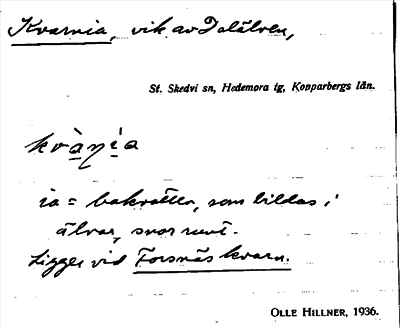 Kvarnia, vik av Dalälven,
St. Skedvi sn, Hedemora tg, Kopparbergs län.
kvànía
ia = bakvatten, som bildas i
älvar, snor runt.
Ligger vid Forsnäs kvarn.
OLLE HILLNER, 1936.